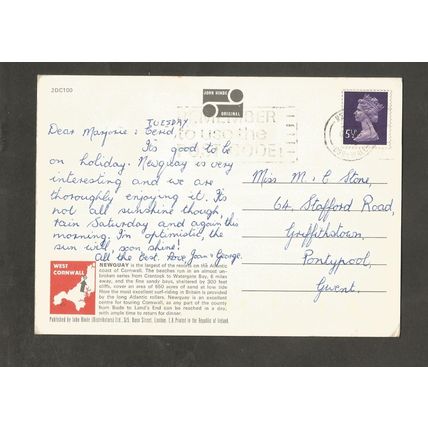 2DC100
JOHN HINDE
ORIGINAL
REMEMBER
to use the
POSTCODE!
5½P
TUESDAY
Dear Marjorie & Enid,
It's good to be
on holiday. Newquay is very
interesting and we are
thoroughly enjoying it. It's
not all sunshine though,
rain Saturday and again this
morning. I'm optimistic, the
sun will soon shine!
All the best. Love Joan & George.
Miss M. C Stone,
64, Stafford Road,
Griffithstown,
Pontypool,
Gwent.
WEST
CORNWALL
NEWQUAY is the largest of the resorts on the Atlantic
coast of Cornwall. The beaches run in an almost un-
broken series from Crantock to Watergate Bay, 6 miles
away, and the fine sandy bays, sheltered by 200 feet
cliffs, cover an area of 650 acres of sand at low tide.
Here the most excellent surf-riding in Britain is provided
by the long Atlantic rollers. Newquay is an excellent
centre for touring Cornwall, as any part of the county
from Bude to Land's End can be reached in a day,
with ample time to return for dinner.
Published by John Hinde (Distributors) Ltd., Street, London. Printed in the Republic of Ireland.